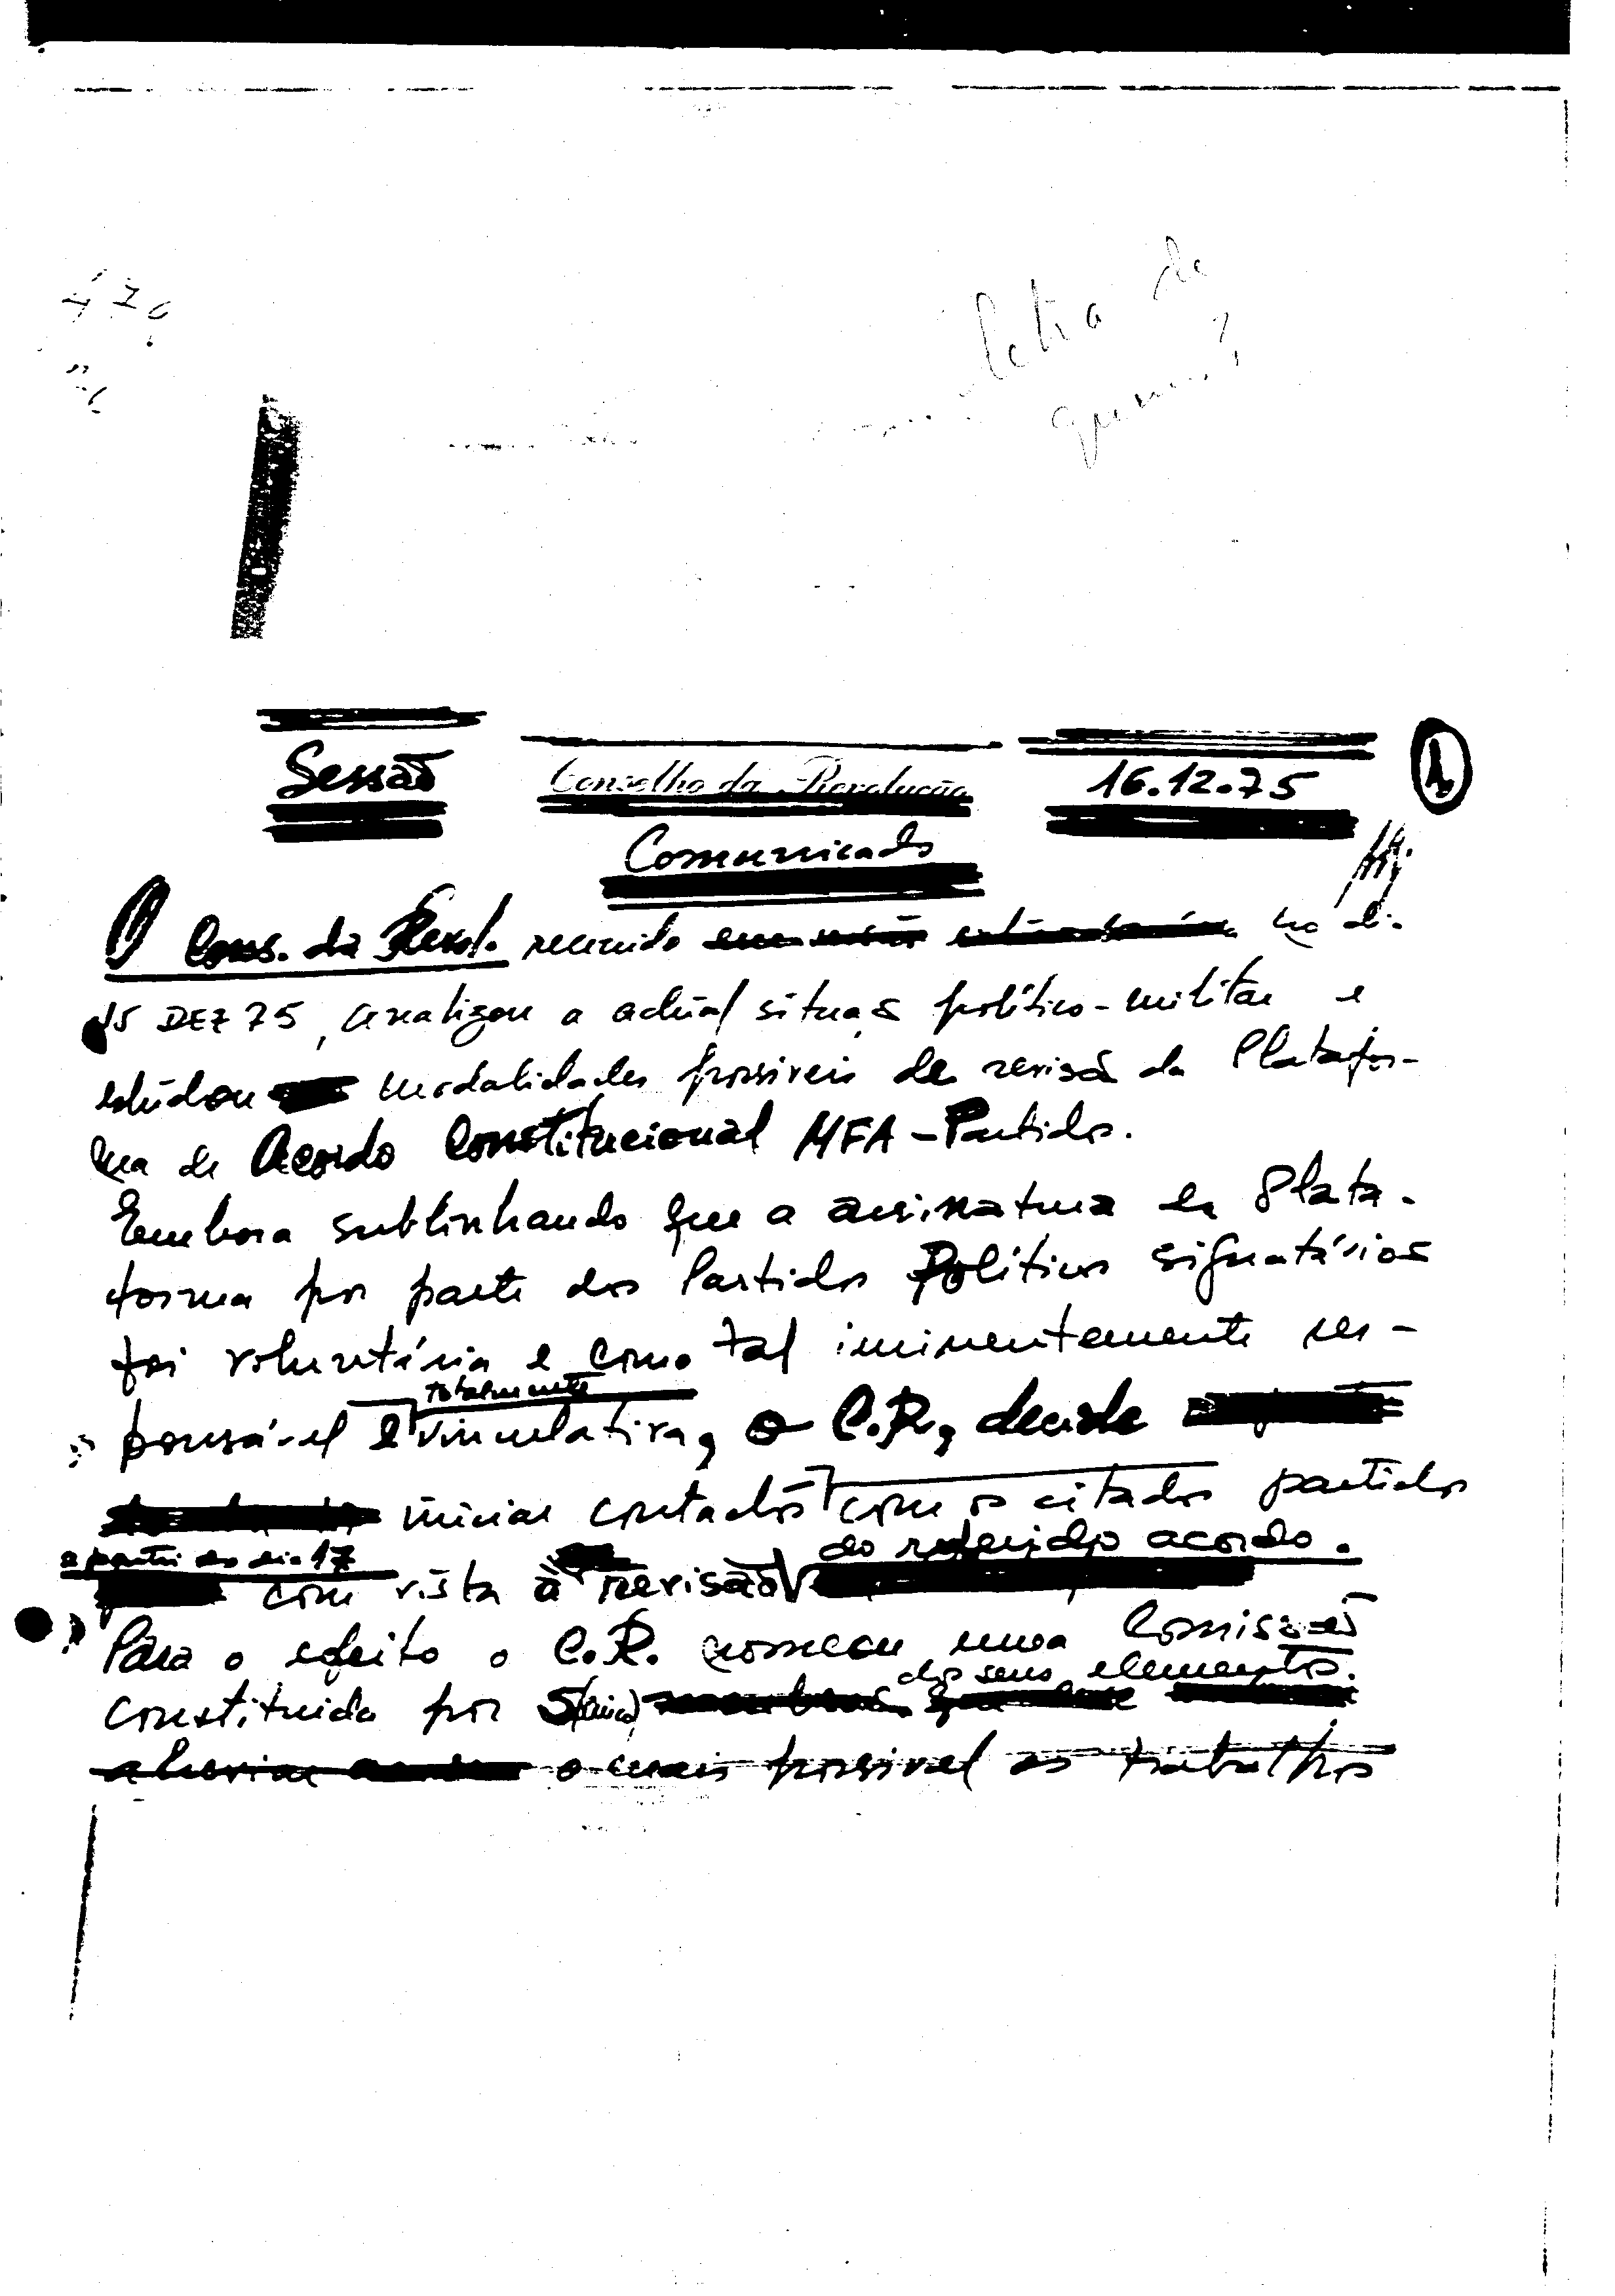 letra de
quem?
Sessão Conselho da Revolução 16.12.75 1
Comunicado
O Cons. da Revol. reunido em sessão extraordinária no di-
15 DEZ 75, analizou a actual situaç. político-militar e
estudou modalidades possiveis de revisão da Platafor-
ma de Acordo Constitucional MFA-Partidos.
Embora sublinhando que a assinatura da Plata-
forma por parte dos Partidos Políticos signatários
foi voluntária e como tal iminentemente res-
totalmente
ponsável e vinculativa, o C.R., decide
iniciar contactos com os citados partidos
a partir do dia 17 do referido acordo.
com vista à revisão
Para o efeito o C.R. nomeou uma Comissão
dos seus elementos.
constituida por 5 (cinco)
o mais possivel os trabalhos